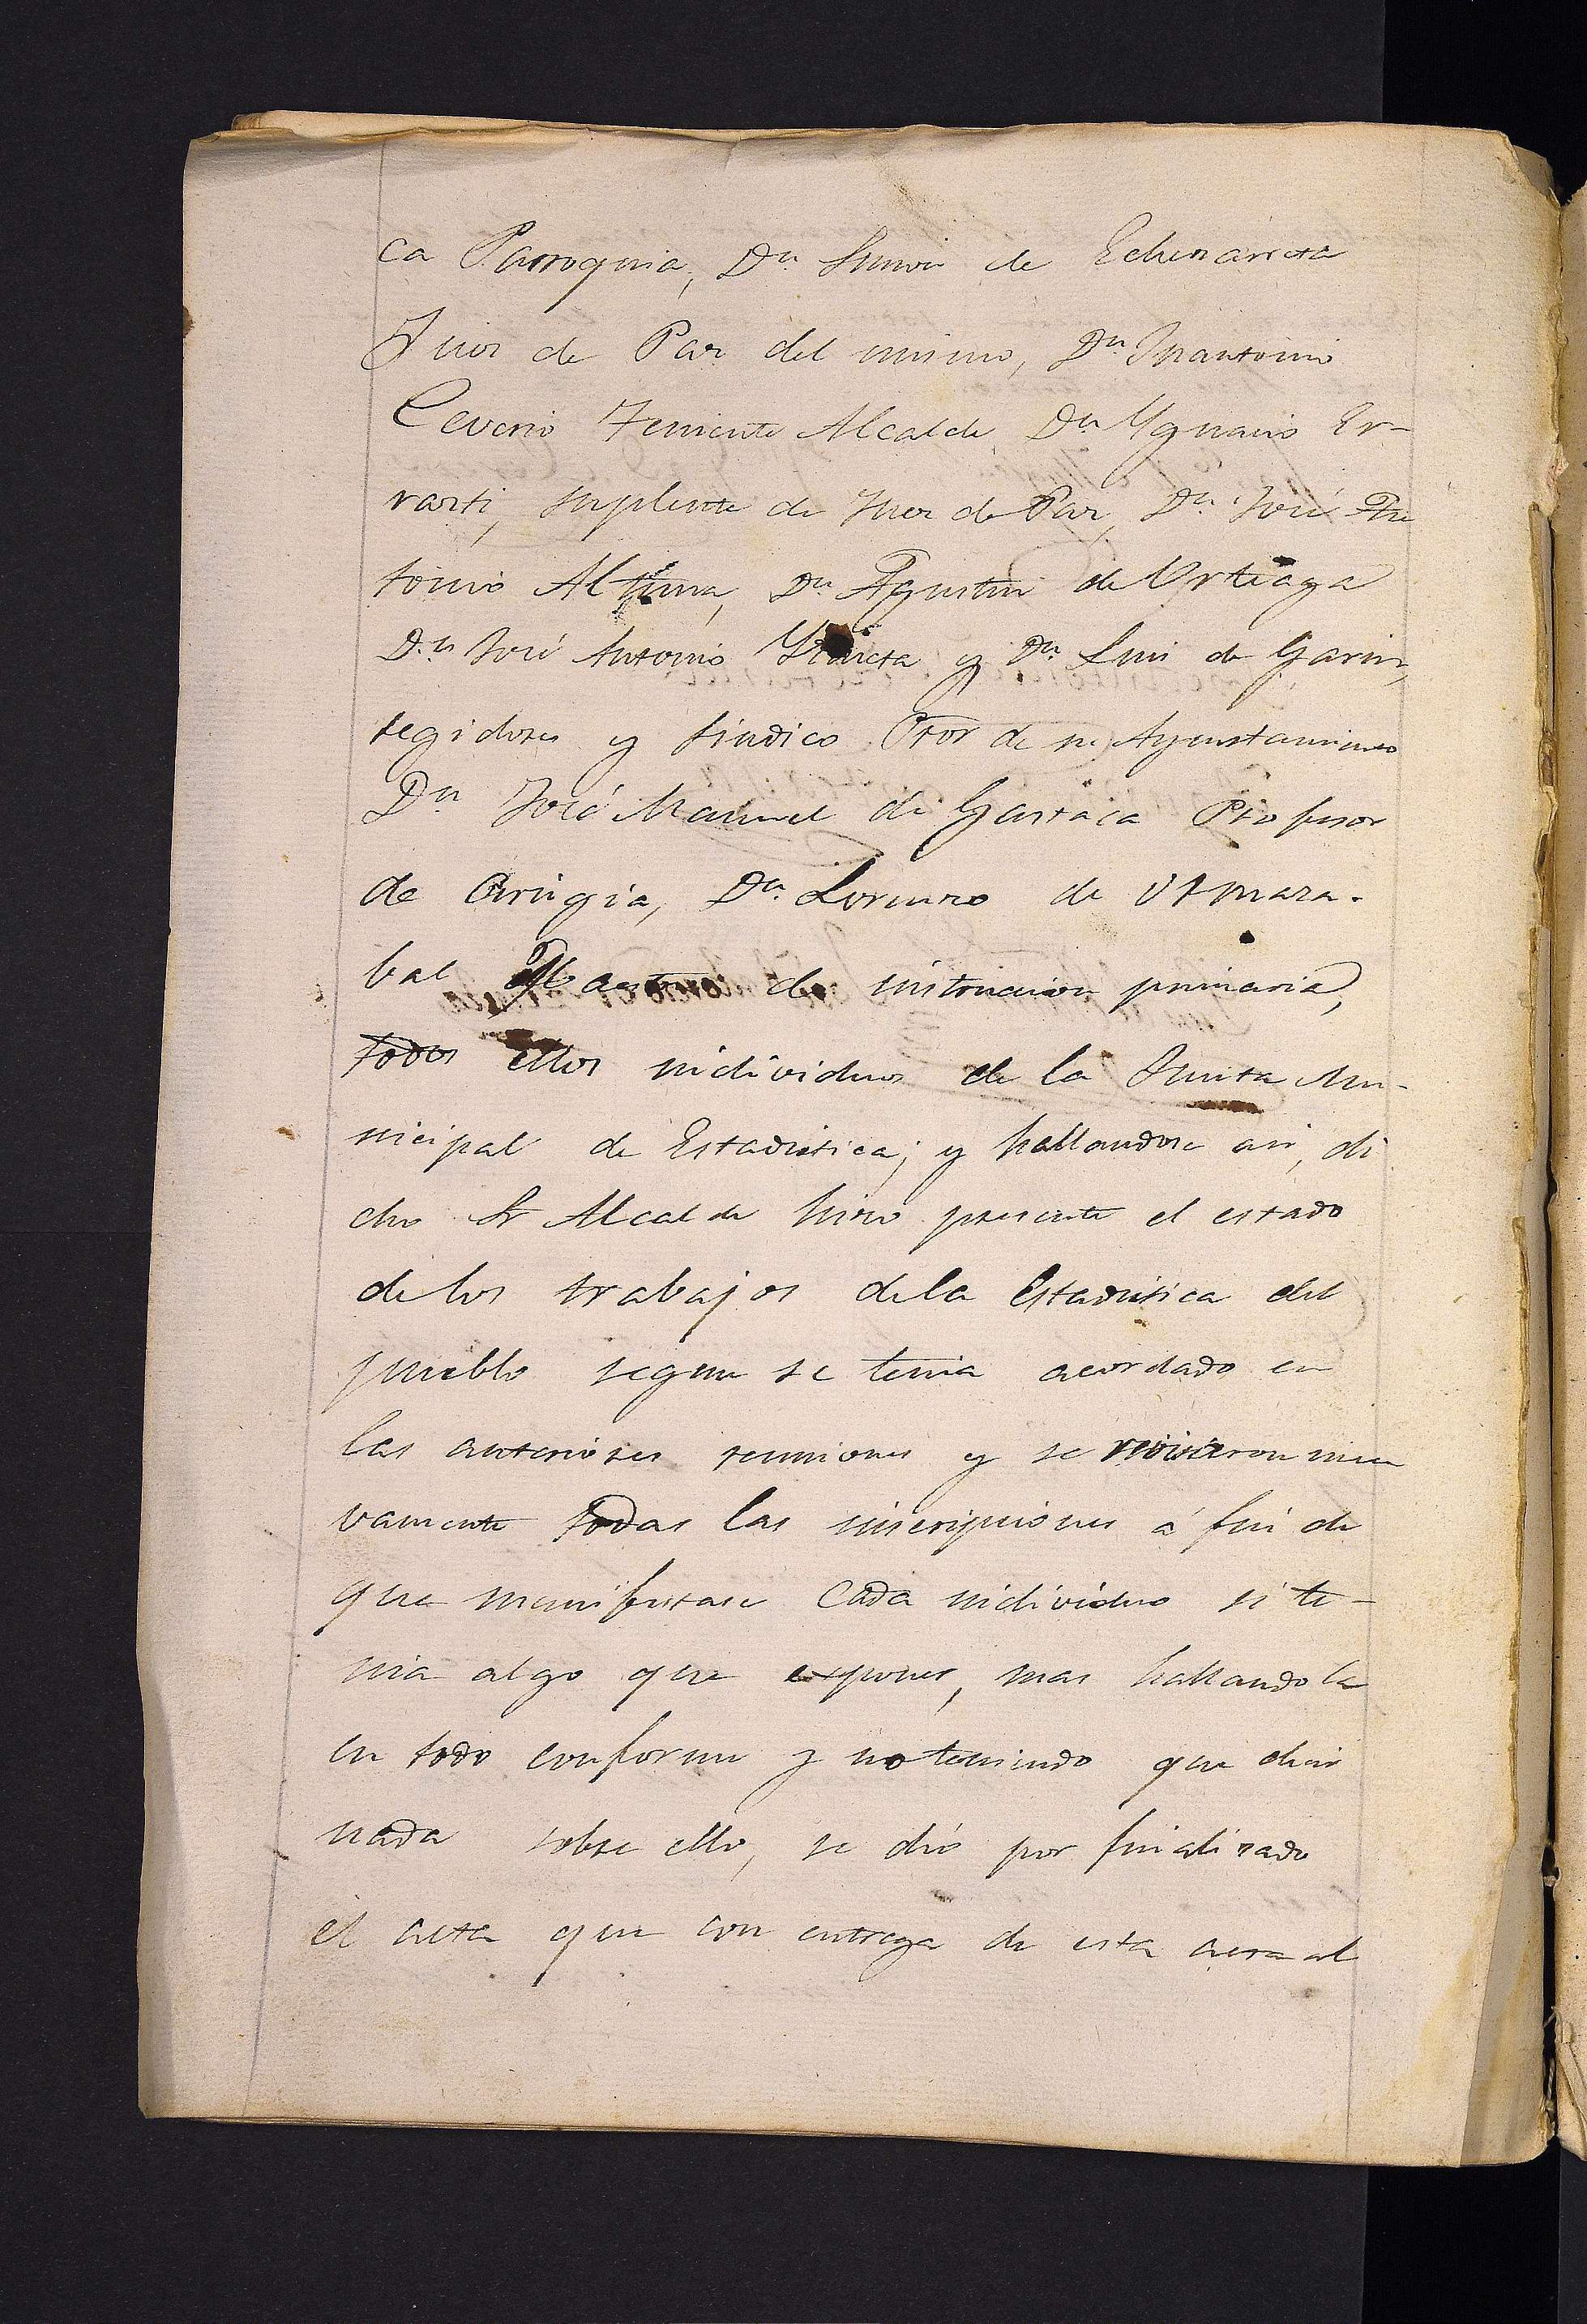 ca Parroquia, Dn. Simon de Echenarreta
Juez de Paz del mismo, Dn. Juantonio
Ceverio Teniente Alcalde Dn Ygnacio Er-
rasti, suplente de Juez de Paz, Dn. José An
tonio Altuna, Dn Agustin de Urteaga
Dn. José Antonio y Dn. Luis de Garin,
regidores y sindico Pror de su Ayuntamiento
Dn José Manuel de Gastaca Profesor
de Cirugia, Dn. Lorenzo de Usmara-
bal Maestro de instrucion primaria,
todos ellos individuos de la Junta Mu-
nicipal de Estadistica; y hallandose asi, di
cho Sr Alcalde hizo presente el estado
de los trabajos dela Estadistica del
pueblo segun se tenia acordado en
las anteriores reuniones y se revisaron nue
vamente todas las inscripciones á fin de
que manifestase cada individuo si te-
nia algo que exponer, mas hallandola
en todo conforme y no teniendo que decir
nada sobre ello, se dió por finalizado
el acta que con entrega de esta acta al